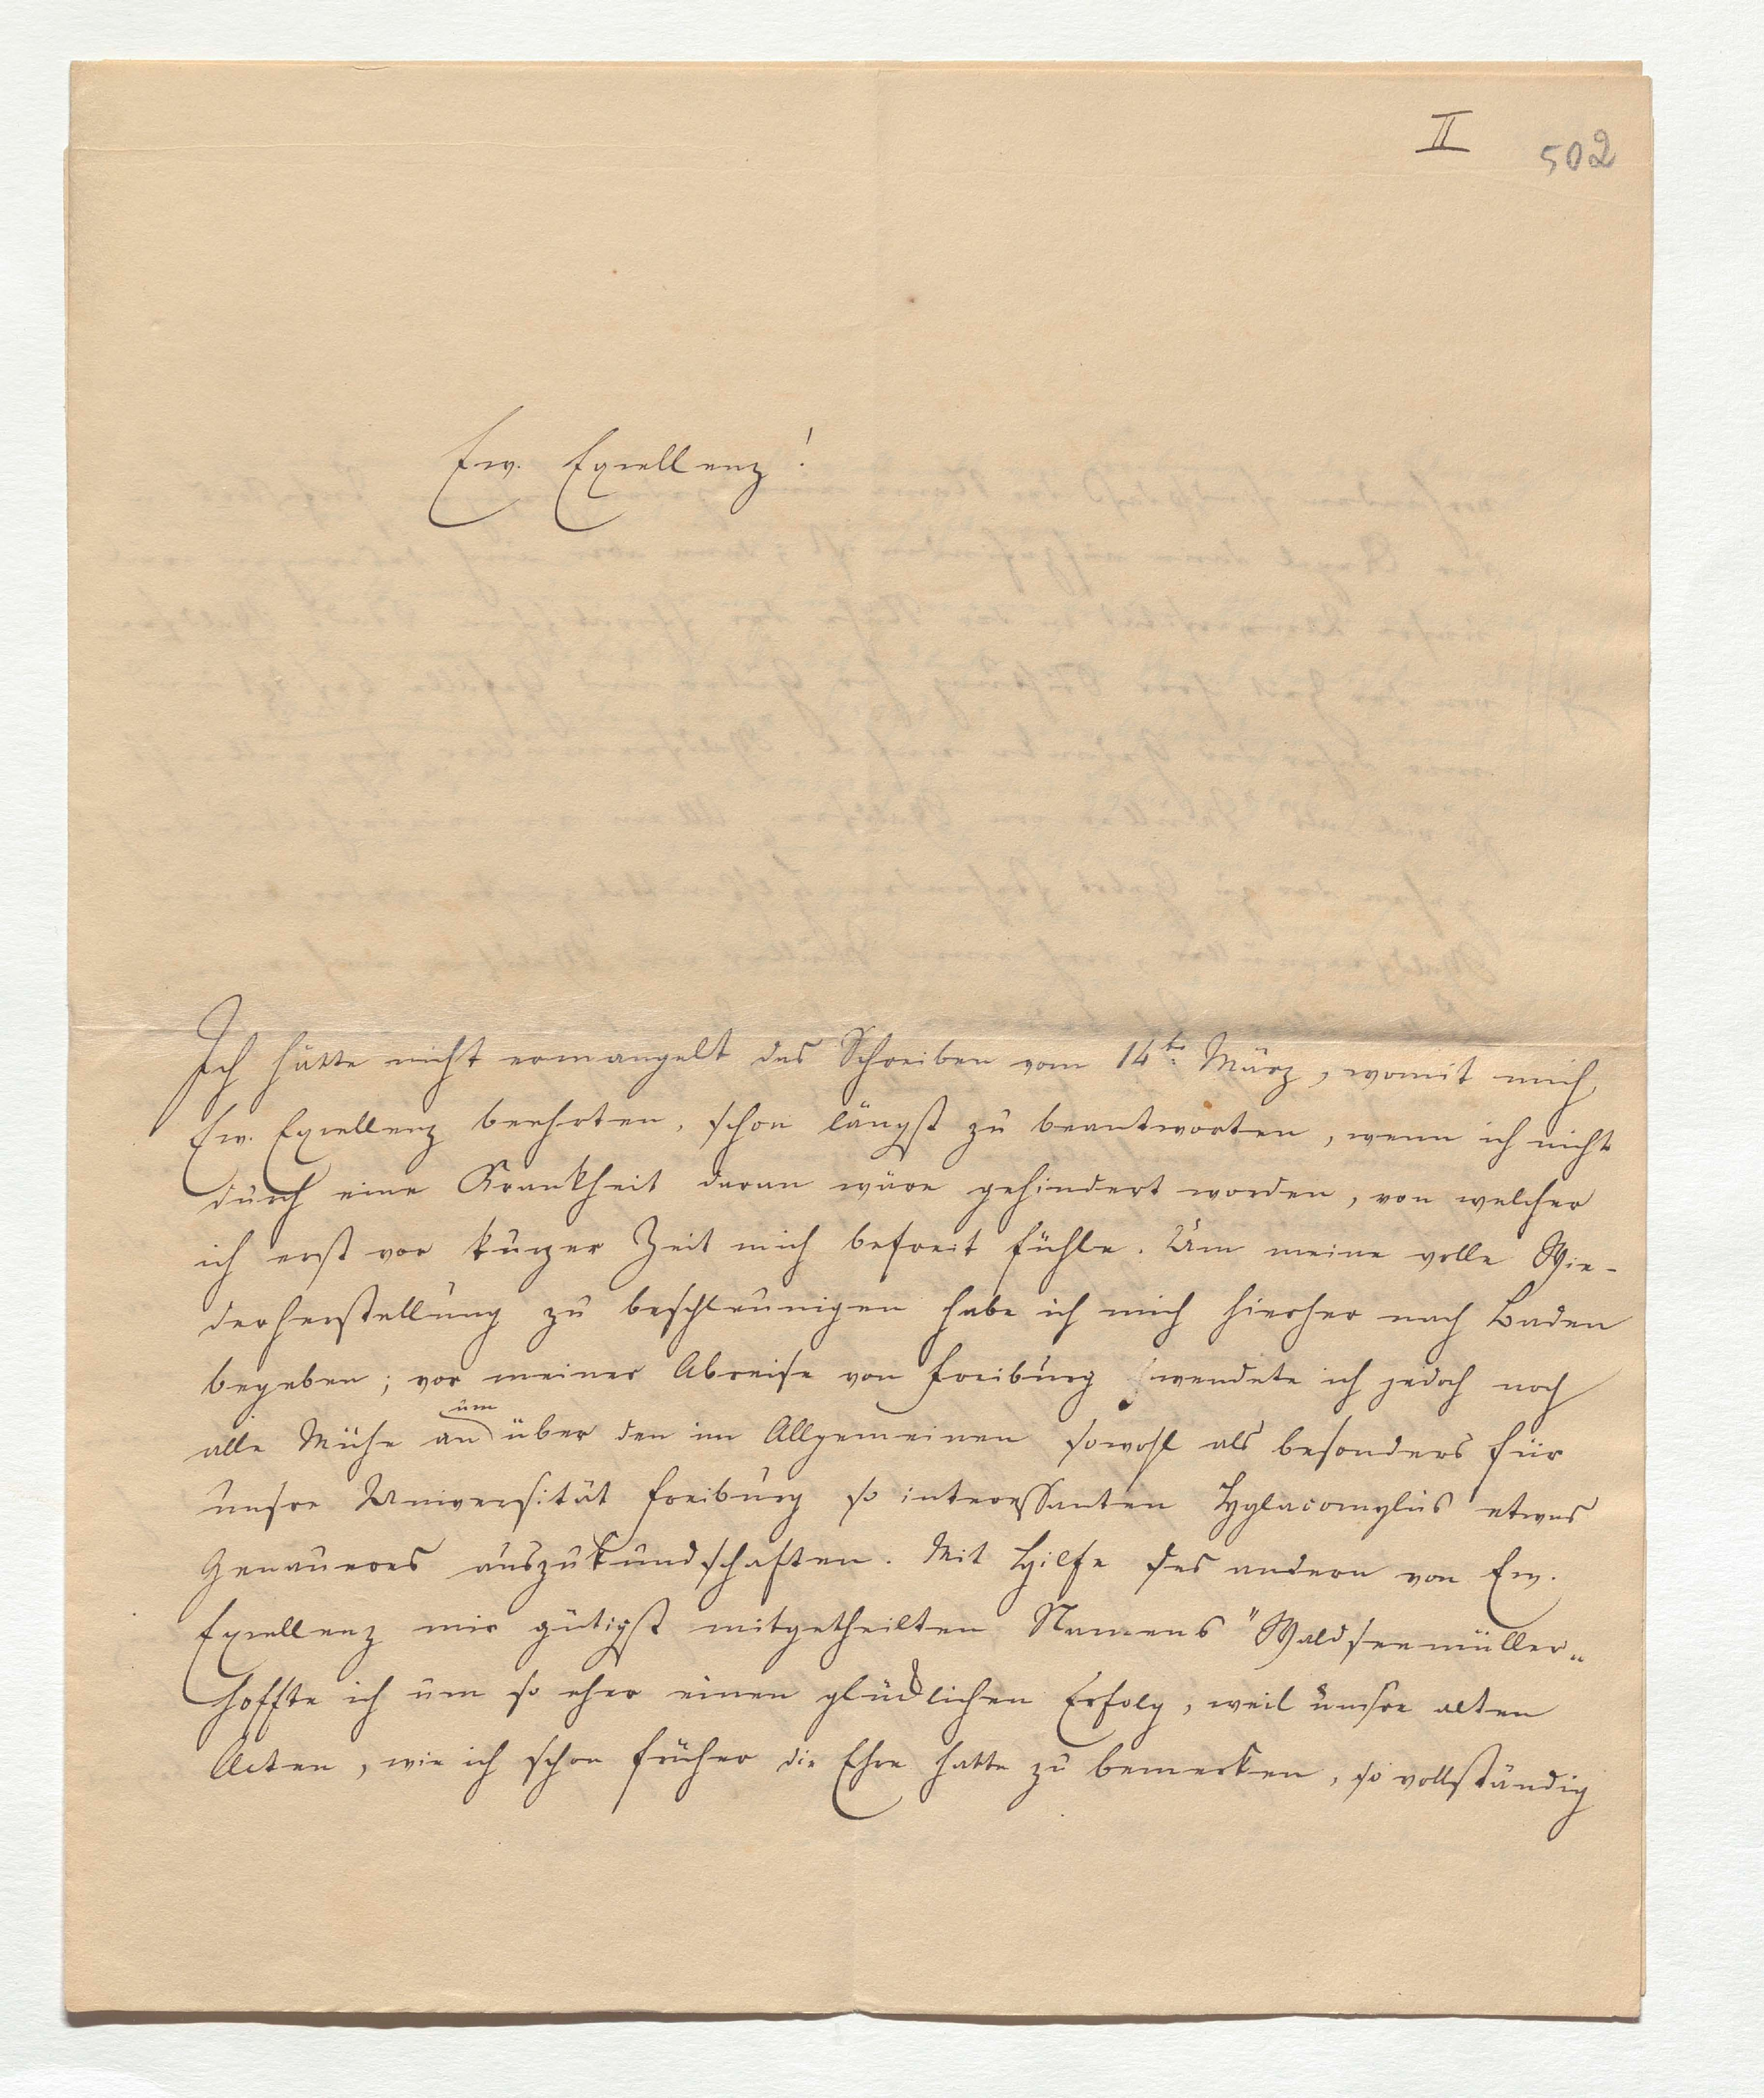 II
502
Ew. Excellenz!
Ich hätte nicht ermangelt das Schreiben vom 14ten März, womit mich
Ew. Excellenz beehrten, schon längst zu beantworten, wenn ich nicht
durch eine Krankheit daran wäre gehindert worden, von welcher
ich erst vor kurzer Zeit mich befreit fühle. Um meine volle Wie-
derherstellung zu beschleunigen habe ich mich hierher nach Baden
begeben; vor meiner Abreise von Freiburg wendete ich jedoch noch
alle Mühe an um über den im Allgemeinen sowohl als besonders für
unsre Universität Freiburg so interessanten Hylacomylus etwas
Genaueres auszukundschaften. Mit Hilfe des andern von Ew.
Excellenz mir gütigst mitgetheilten Namens "Waldseemüller"
hoffte ich um so eher einen glücklichen Erfolg, weil unsre alten
Acten, wie ich schon früher die Ehre hatte zu bemerken, so vollständig